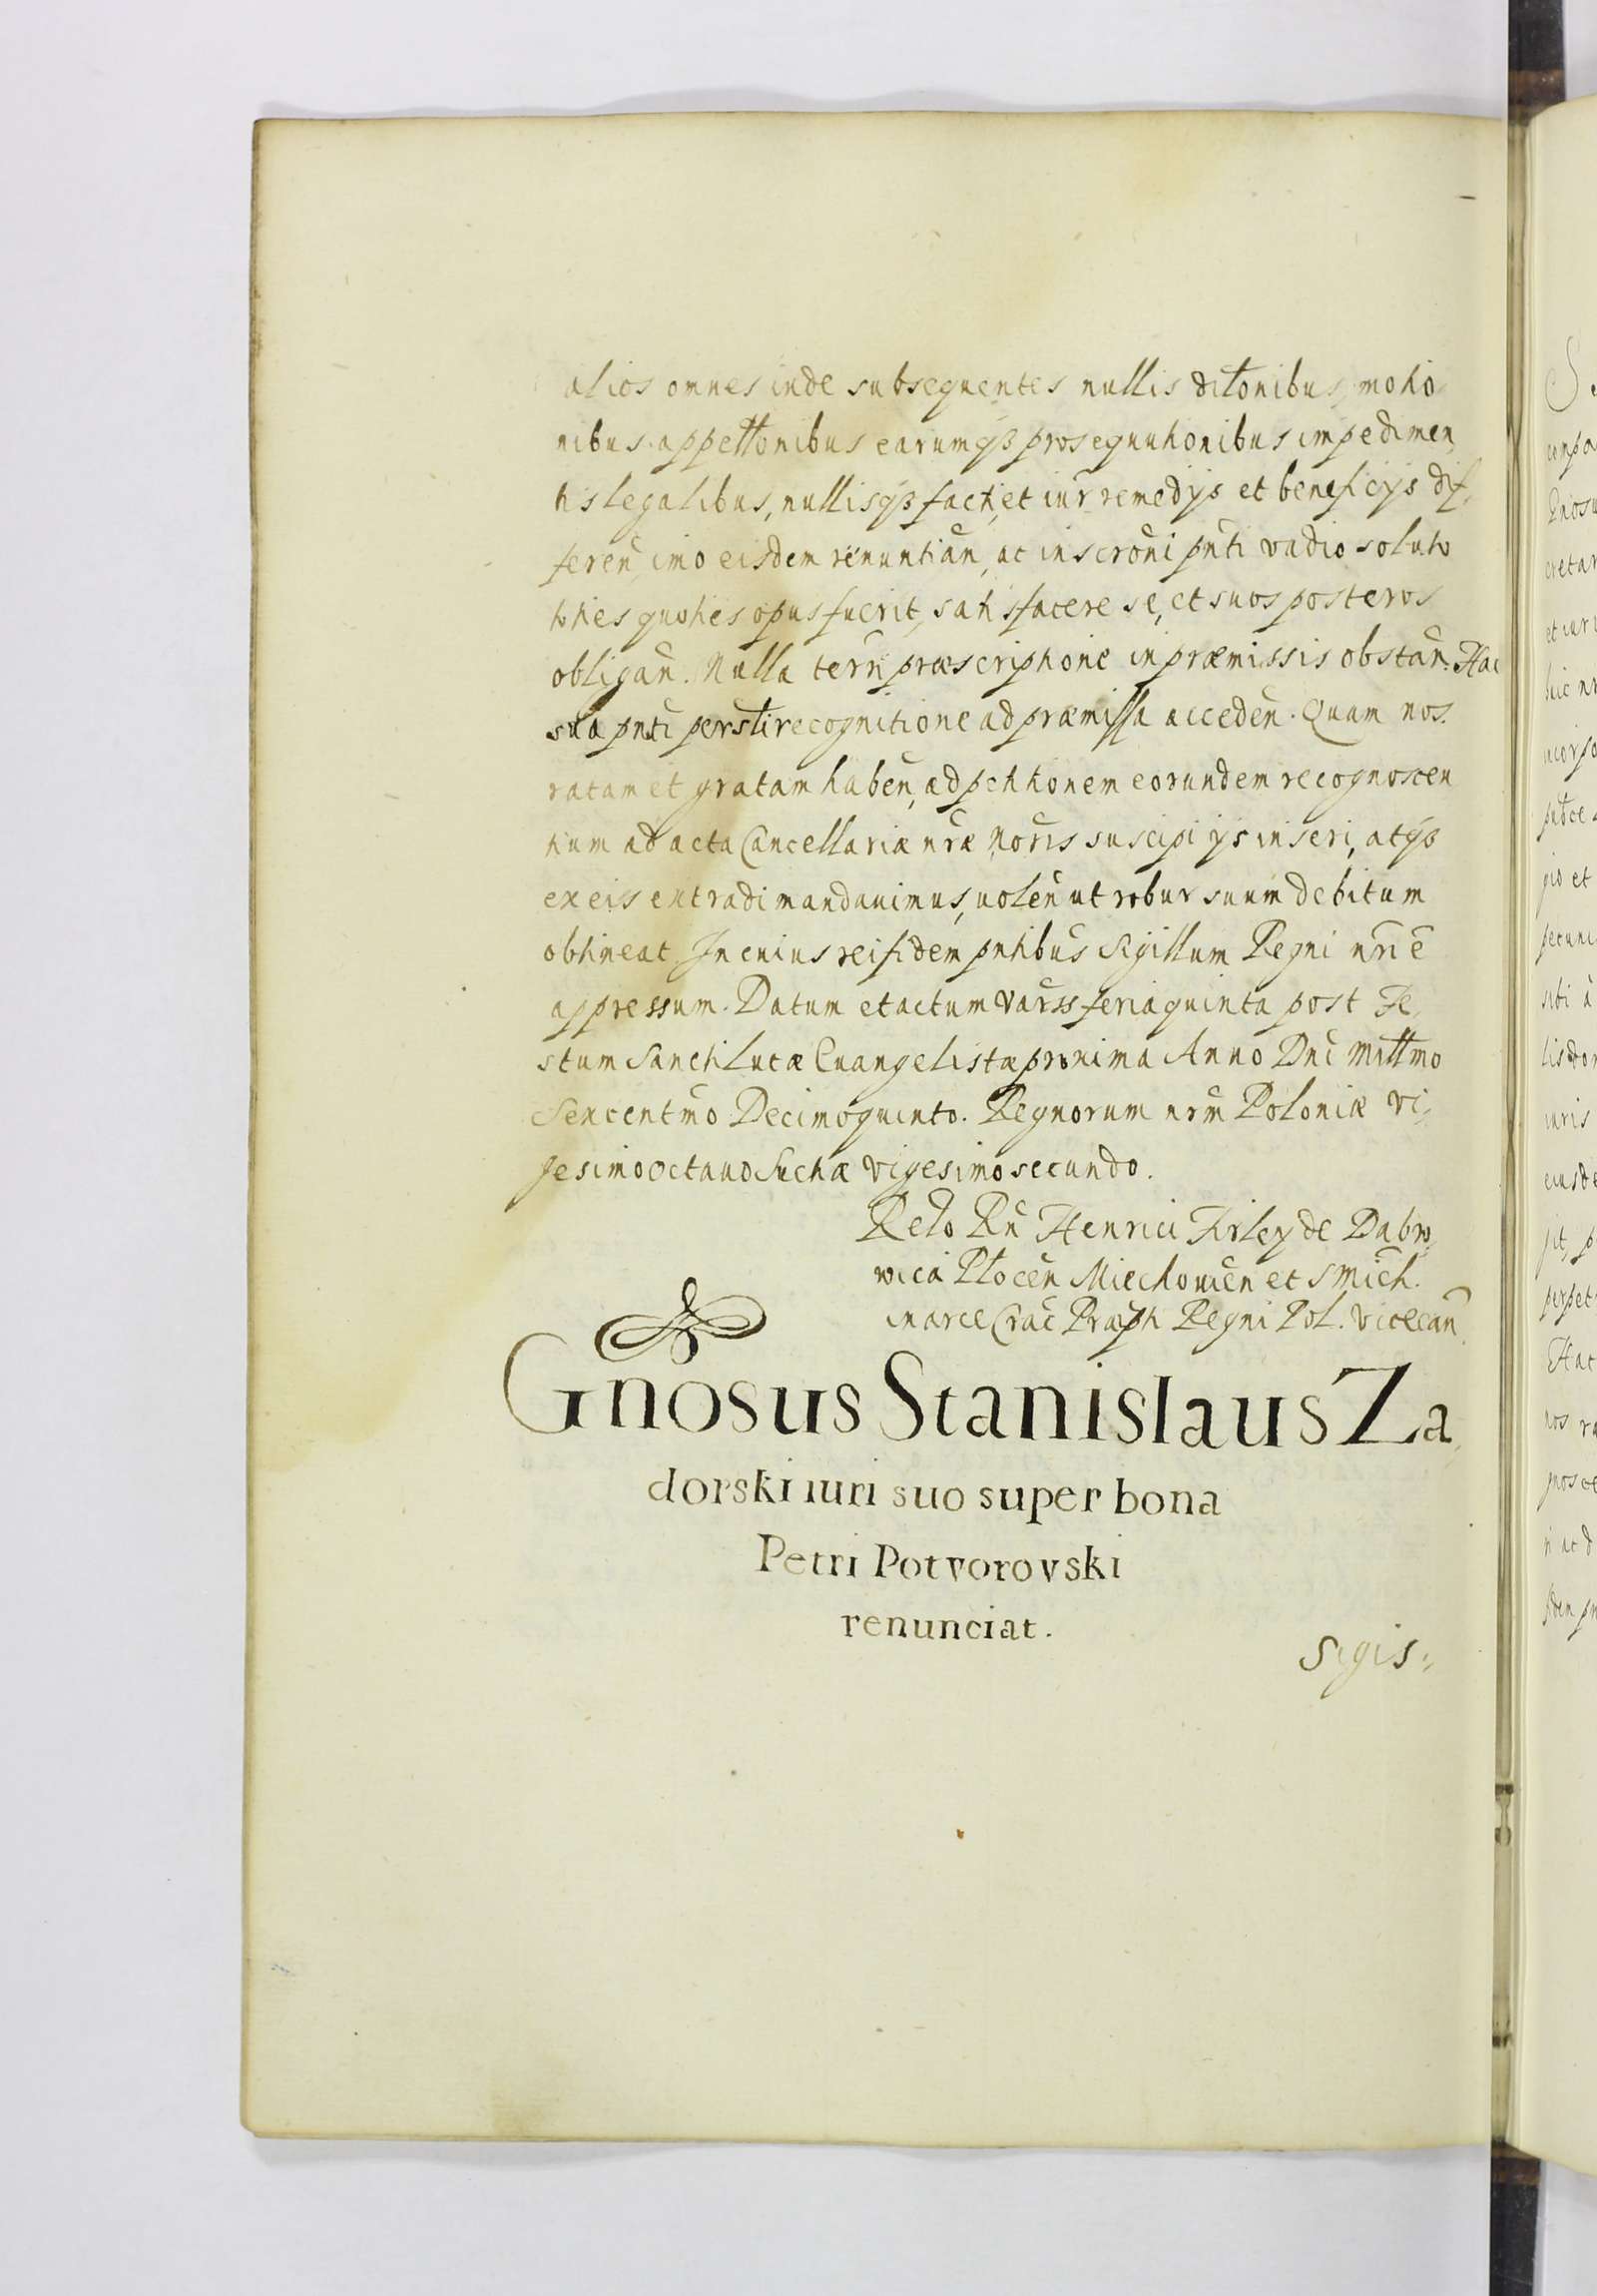 alios omnes inde subsequentes nullis ditonibus, motio
nibus appettonibus earumqȝ prosequutionibus impedimen,
tis legalibus, nullisqȝ facti, et iur̃ remedijs et beneficijs dif,
feren̄ imo eisdem renuntian̄, ac inscroni pn̄ti vadio soluto
toties quoties opus fuerit, satisfacere se, et suos posteros
obligan̄. Nulla terr̄i præscriptione in præmissis obstan̄. Hac
sua pn̄ti persti recognitione ad præmissa acceden̄. Quam nos
ratam et gratam haben̄, ad petitionem eorundem recognoscen
tium ad acta Cancellariæ nr̄æ Moris suscipi ijs inseri, atqȝ
ex eis extradi mandauimus, uolen̄ ut robur suum debitum
obtineat. In cuius rei fidem pn̄tibus Sigillum Regni nr̄i ē
appressum. Datum et actum Vars̄s feria quinta post Fe,
stum Sancti Lucæ Euangelistæ proxima Anno Dn̄i Mittmo
Sexcentm̄o Decimoquinto. Regnorum nr̄m Poloniæ vi,
gesimo octauo Suetiæ vigesimo secundo.
Relo Rn̄ Henrici Firley de Dabro,
wica Plocen̄ Miechouien̄ et S Mich.
in arce Crac̄ Præpti Regni Pol. Vicecan̄
Gnosus Stanislaus Za,
dorski iuri suo super bona
Petri Potvorovski
renunciat.
Sigis: